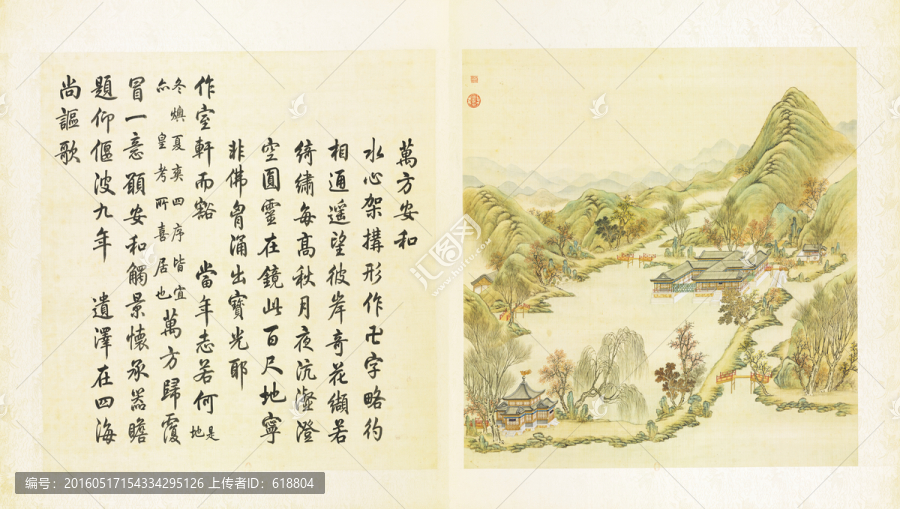 萬方安和
水心架構形作卍字略彴
相通遥望彼岸奇花纈若
綺繡每高秋月夜沆瀣澄
空圓靈在鏡此百尺地寧
非佛胷涌出寶光耶
作室軒而豁 當年志若何 是地
冬燠夏爽四序皆宜
亦皇考所喜居也
萬方歸覆
冒一意願安和觸景懷承器瞻
題仰偃波九年 遺澤在四海
尚謳歌
编号：20160517154334295126 上传者ID：618804